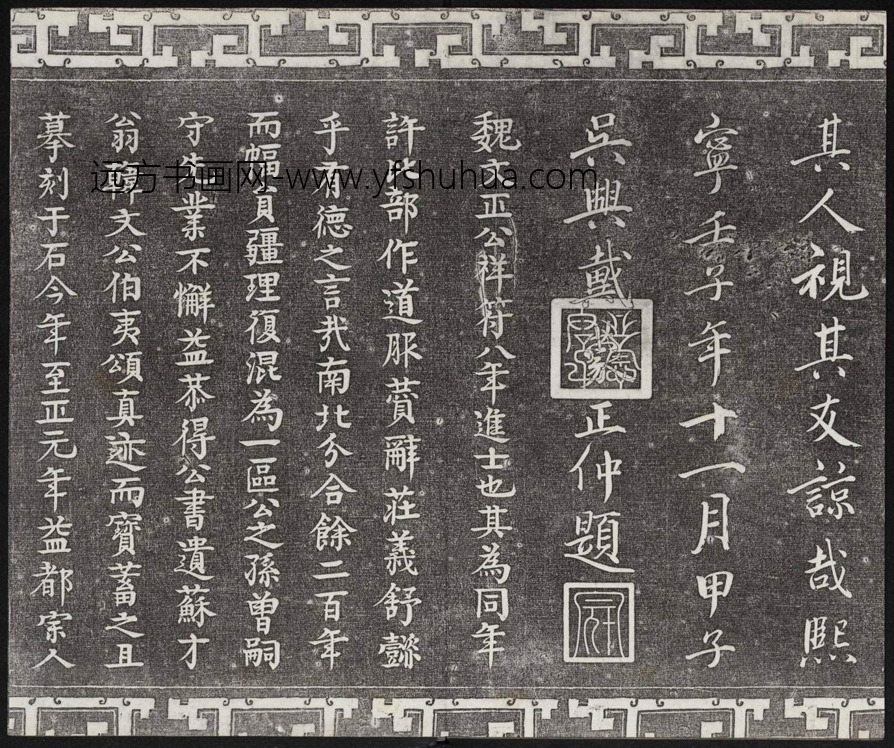 其人視其友諒哉熙
寧壬子年十一月甲子
吳興戴
正仲題
魏文正公祥符八年進士也其為同年
許比部作道服蕢辭莊義舒懿
乎有德之言哉南北分合餘二百年
而幅員疆理復混為一區公之孫曾嗣
守先業不懈益恭得公書遺蘇才
翁韓文公伯夷頌真迹而寳蓄之且
摹刻于石今年至正元年益都宗人
远方书画网-www.yfshuhua.com